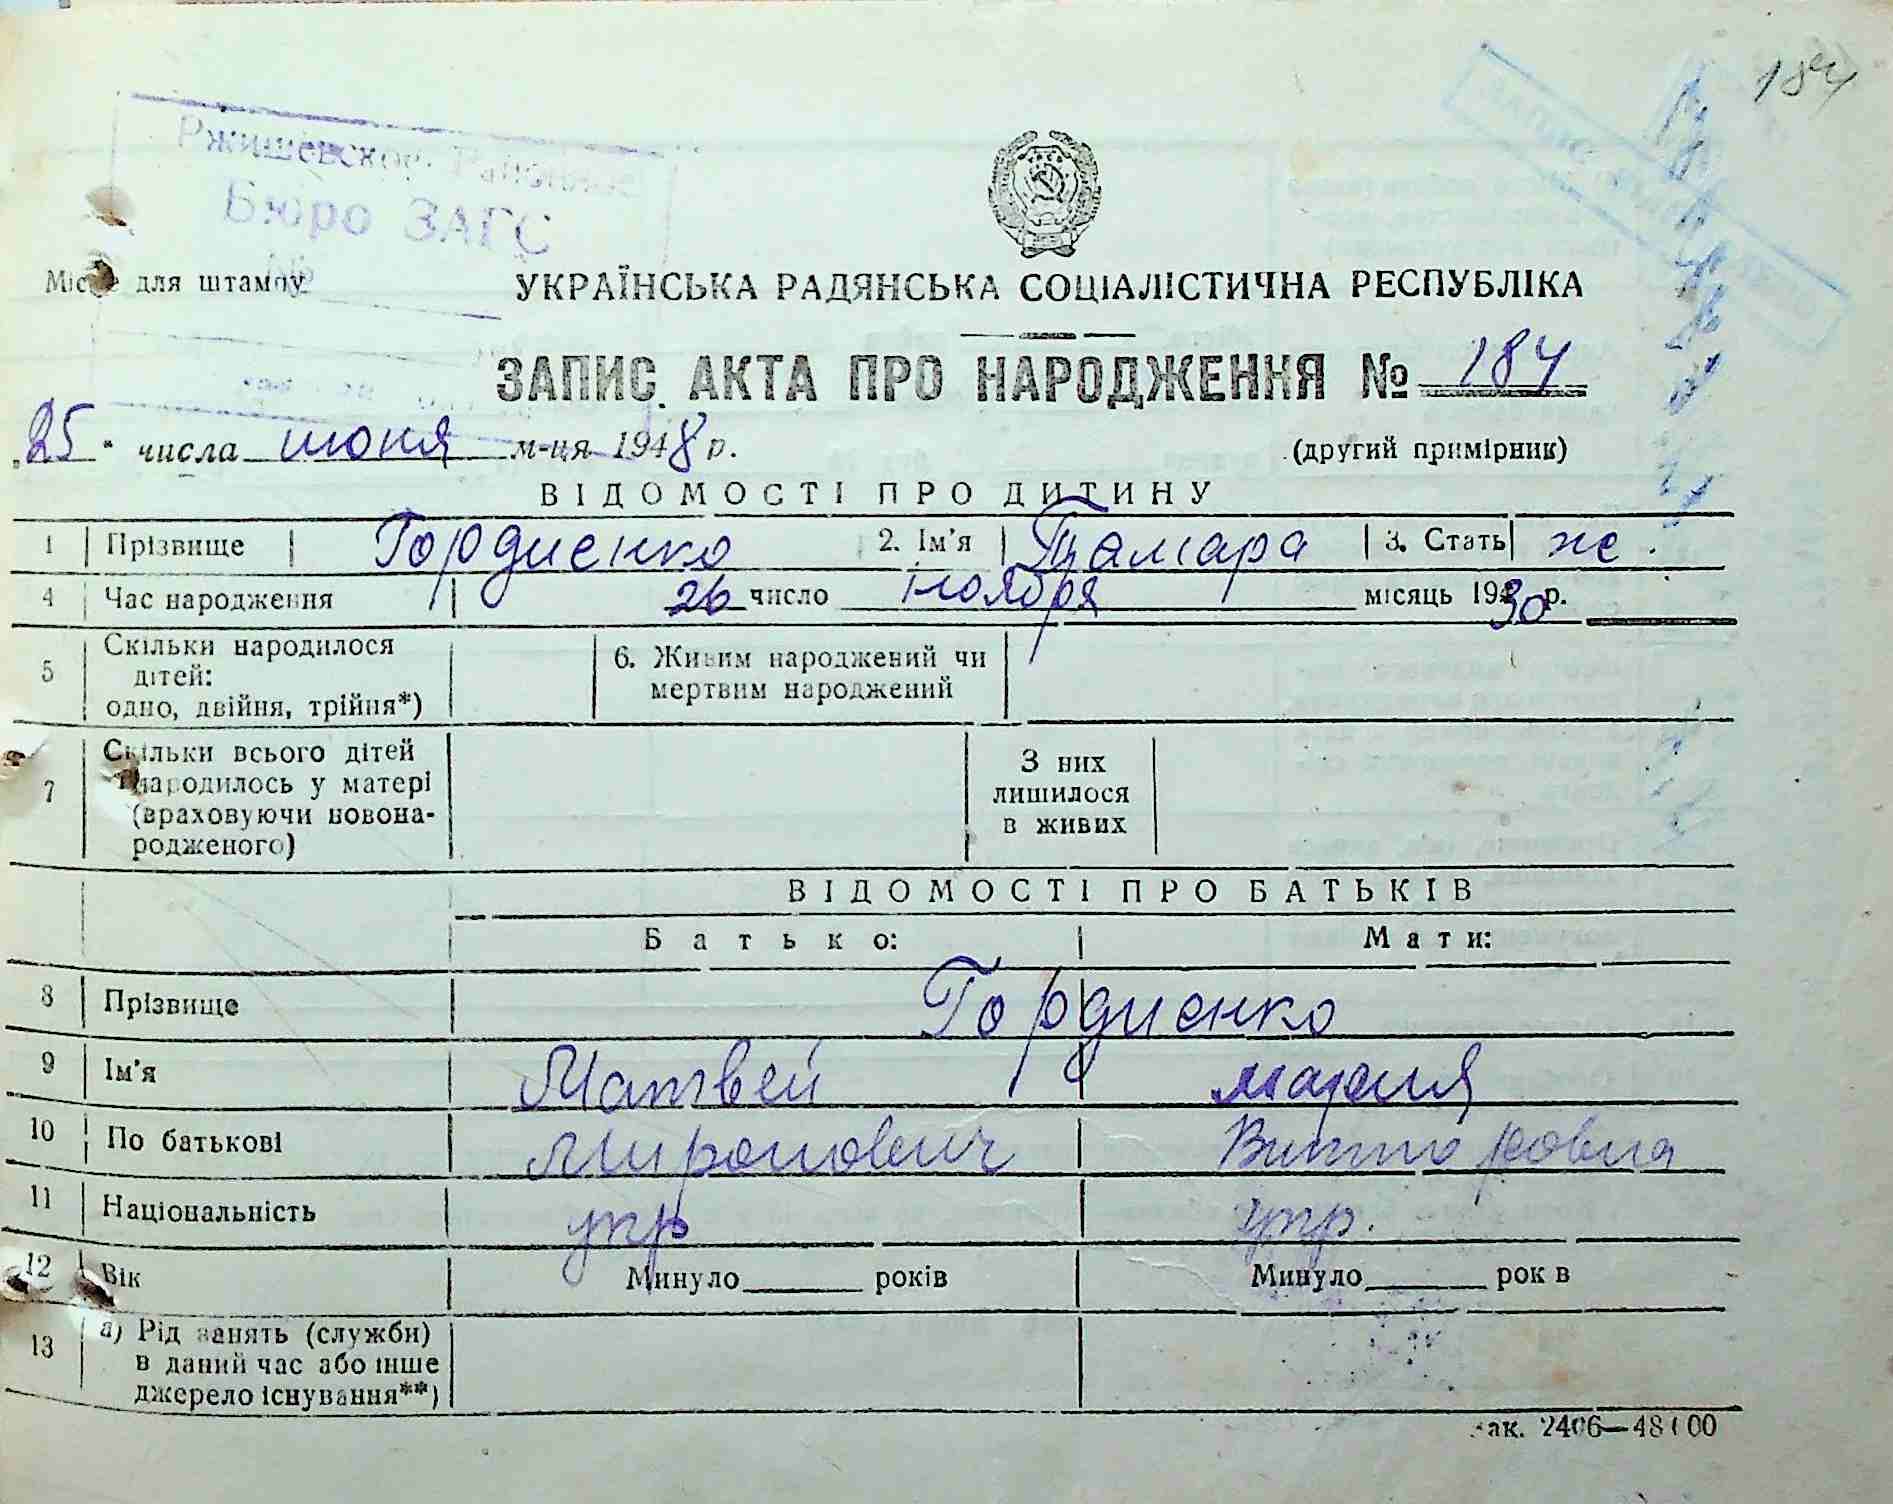 184
Ржищевское Районное
Бюро ЗАГС
№
Місце для штампу
УКРАЇНСЬКА РАДЯНСЬКА СОЦІАЛІСТИЧНА РЕСПУБЛІКА
ЗАПИС АКТА ПРО НАРОДЖЕННЯ № 184
„25“ числа июня м-ця 1948 р.
(другий примірник)
ВІДОМОСТІ ПРО ДИТИНУ
1 Прізвище Гордиенко 2. Ім'я Тамара 3. Стать же.
4 Час народження 26 число ноября місяць 1930 р.
5 Скільки народилося дітей: одно, двійня, трійня*) 6. Живим народжений чи мертвим народжений
7 Скільки всього дітей народилось у матері (враховуючи новонародженого) З них лишилося в живих
ВІДОМОСТІ ПРО БАТЬКІВ
Батько: Мати:
8 Прізвище Гордиенко
9 Ім'я Матвей Мария
10 По батькові Миронович Викторовна
11 Національність укр укр.
12 Вік Минуло років Минуло рок в
13 а) Рід занять (служби) в даний час або інше джерело існування**)
Зак. 2406—48100